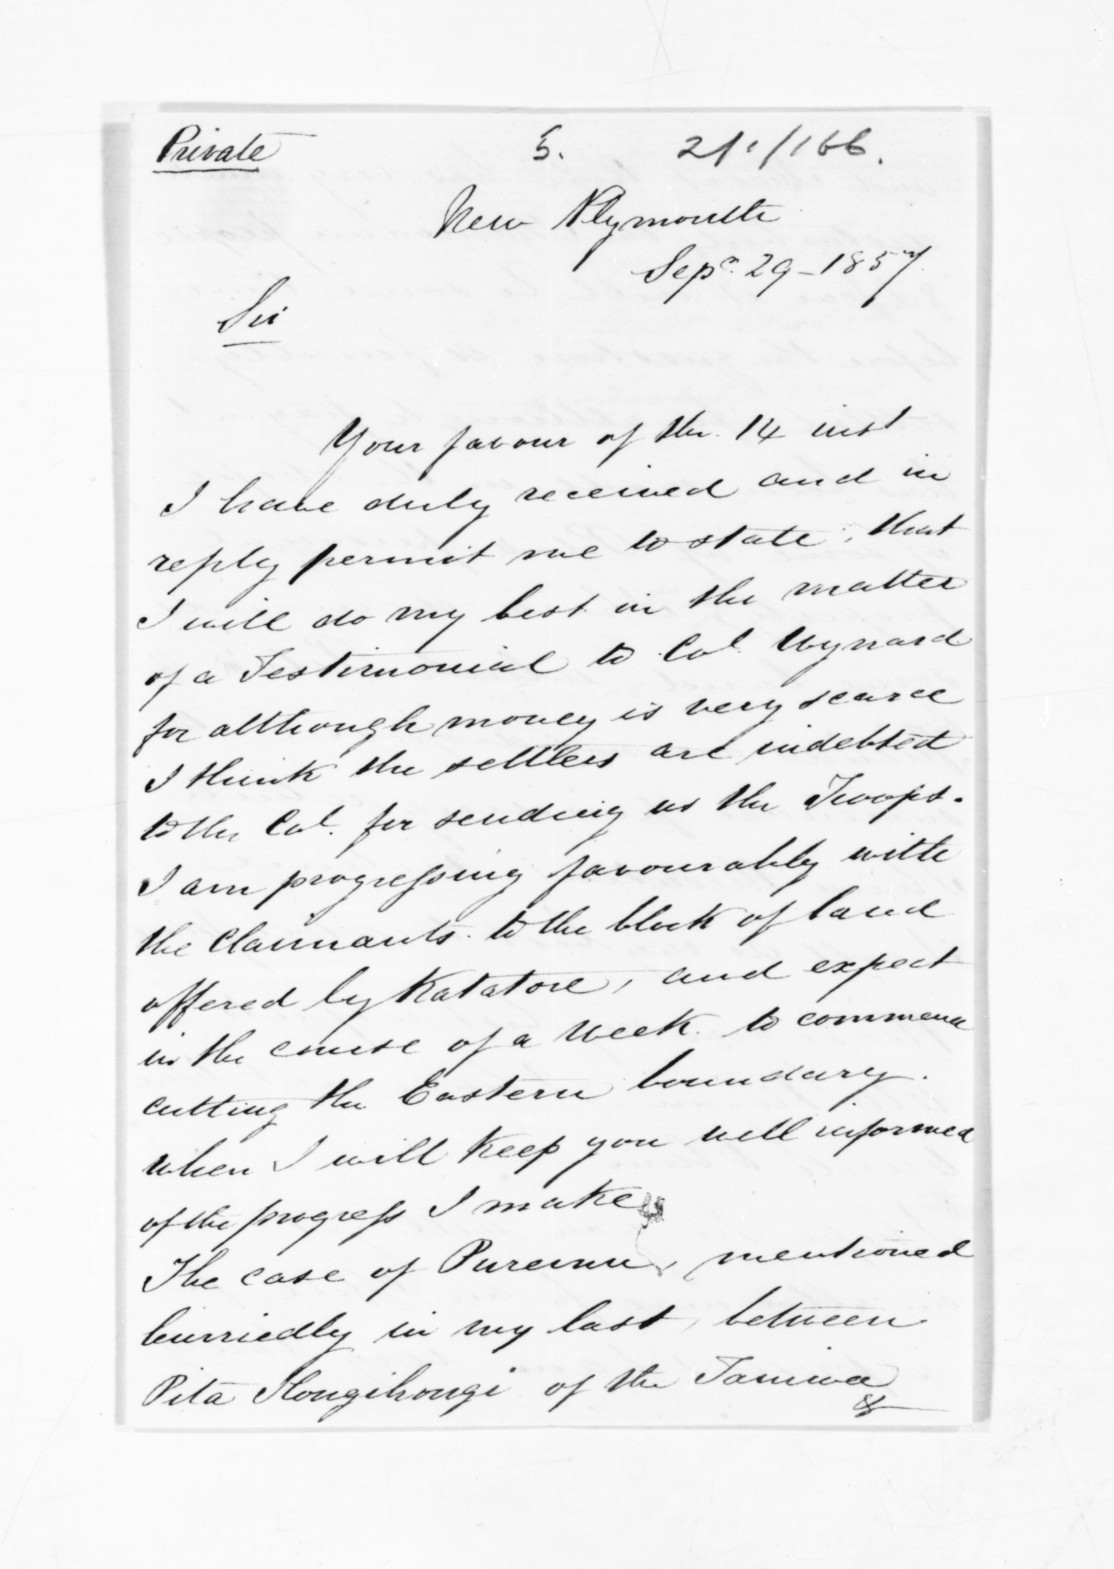 Private 5. 21/1/166.
New Plymouth
Sepr. 29 - 1857
Sir
Your favour of the 14 inst
I have duly received and in
reply permit me to state, that
I will do my best in the matter
of a Testimonial to Col. Wynard
for although money is very scarce
I think the settlers are indebted
to the Col. for sending us the Troops.
I am progressing favourably with
the claimants to the block of land
offered by Katatore, and expect
in the course of a week to commence
cutting the Eastern boundary.
when I will keep you well informed
of the progress I make
The case of Puremu, mentioned
hurriedly in my last, between
Pita Hongihongi of the Taniwa
&